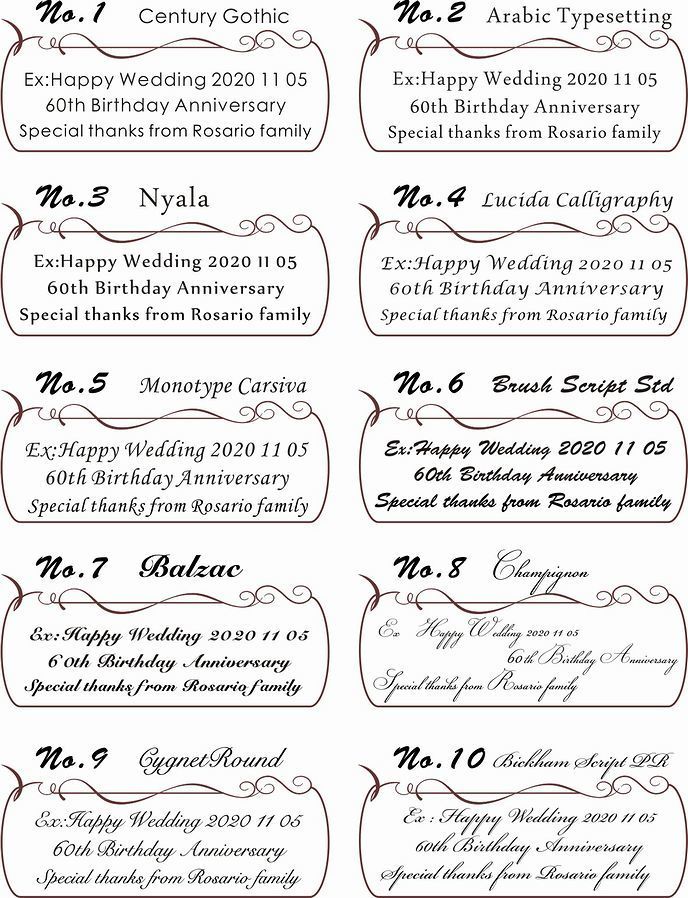 No.1 Century Gothic
Ex:Happy Wedding 2020 11 05
60th Birthday Anniversary
Special thanks from Rosario family
No.2 Arabic Typesetting
Ex:Happy Wedding 2020 11 05
60th Birthday Anniversary
Special thanks from Rosario family
No.3 Nyala
Ex:Happy Wedding 2020 11 05
60th Birthday Anniversary
Special thanks from Rosario family
No.4 Lucida Calligraphy
Ex:Happy Wedding 2020 11 05
60th Birthday Anniversary
Special thanks from Rosario family
No.5 Monotype Carsiva
Ex:Happy Wedding 2020 11 05
60th Birthday Anniversary
Special thanks from Rosario family
No.6 Brush Script Std
Ex:Happy Wedding 2020 11 05
60th Birthday Anniversary
Special thanks from Rosario family
No.7 Balzac
Ex:Happy Wedding 2020 11 05
60th Birthday Anniversary
Special thanks from Rosario family
No.8 Champignon
Ex Happy Wedding 2020 11 05
60th Birthday Anniversary
Special thanks from Rosario family
No.9 CygnetRound
Ex:Happy Wedding 2020 11 05
60th Birthday Anniversary
Special thanks from Rosario family
No.10 Bickham Script PR
Ex : Happy Wedding 2020 11 05
60th Birthday Anniversary
Special thanks from Rosario family